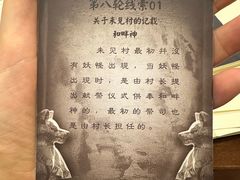 第八轮线索01
关于未见村的记载
和畔神
未见村最初并没
有妖怪出现，当妖怪
出现时，是由村长提
出献祭仪式供奉和畔
神的，最初的祭司也
是由村长担任的。